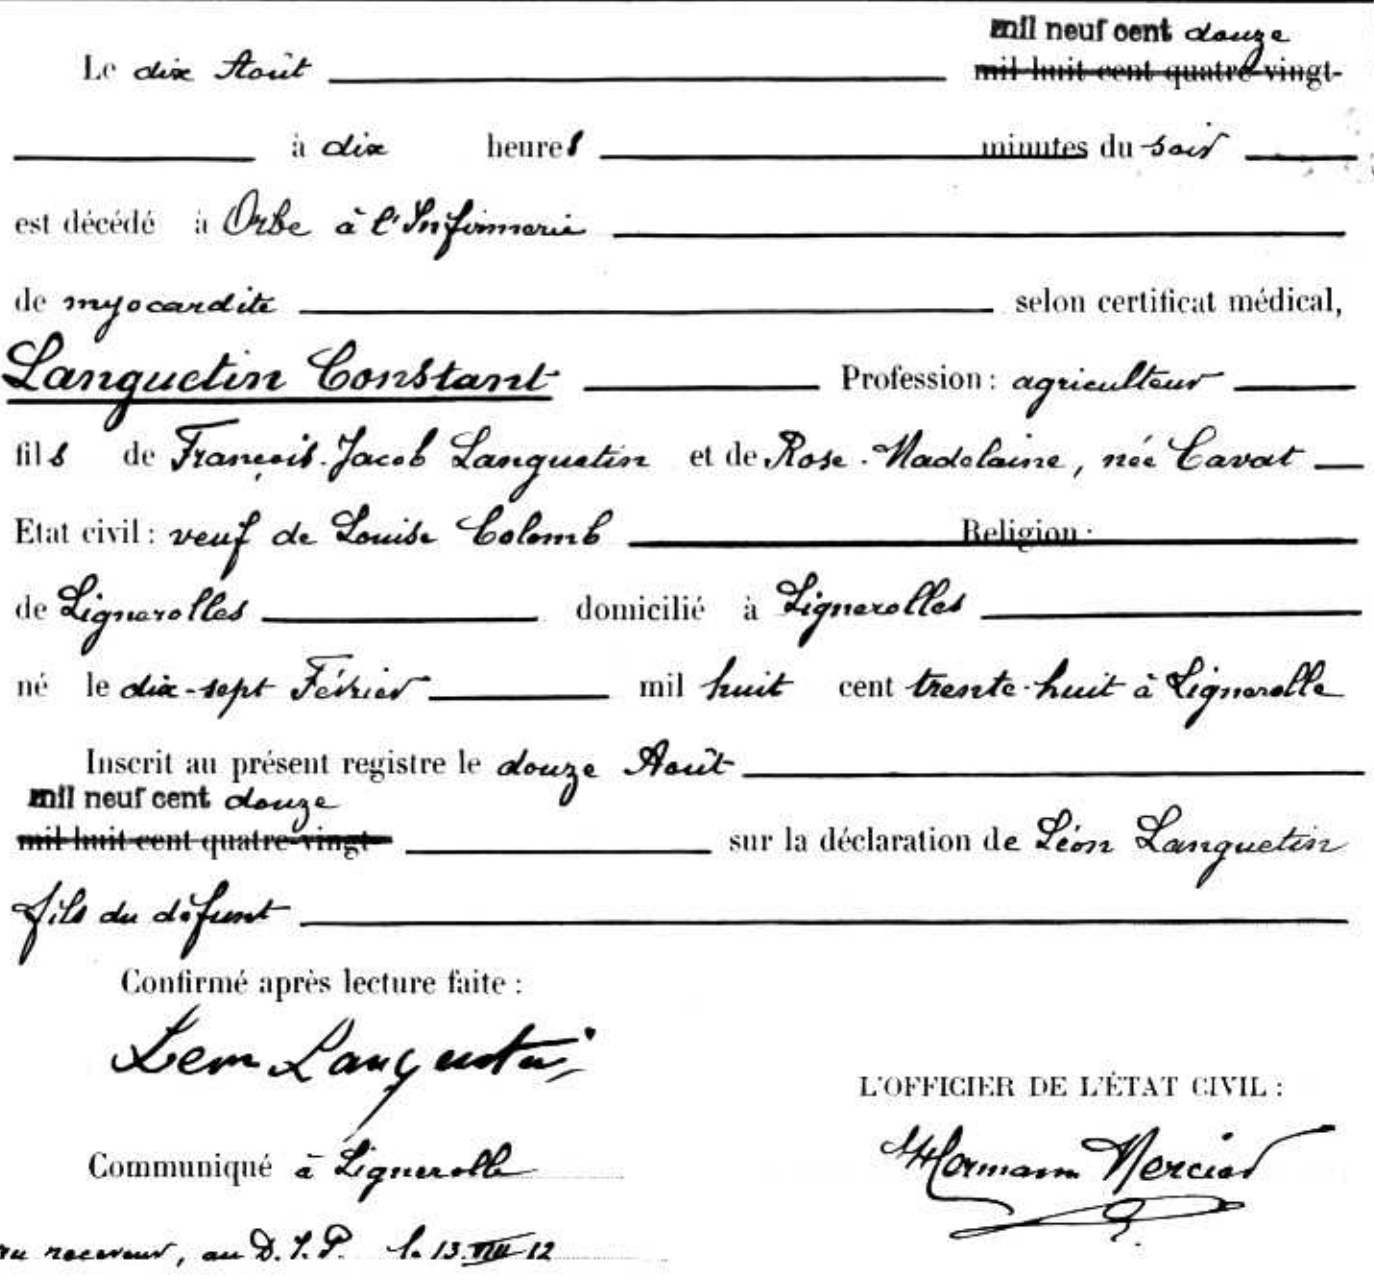 mil neuf cent douze
Le dix Août mil huit cent quatre-vingt-
à dix heures minutes du soir
est décédé à Orbe à l'Infirmerie
de myocardite selon certificat médical,
Languetin Constant Profession : agriculteur
fils de François-Jacob Languetin et de Rose-Madelaine, née Cavat
Etat civil : veuf de Louise Colomb Religion :
de Lignerolles domicilié à Lignerolles
né le dix-sept Février mil huit cent trente-huit à Lignerolle
Inscrit au présent registre le douze Août
mil neuf cent douze
mil huit cent quatre-vingt- sur la déclaration de Léon Languetin
fils du défunt
Confirmé après lecture faite :
Leon Languetin
L'OFFICIER DE L'ÉTAT CIVIL :
Hermann Mercier
Communiqué à Lignerolle
au receveur, au D. J. P. le 13 VIII 12